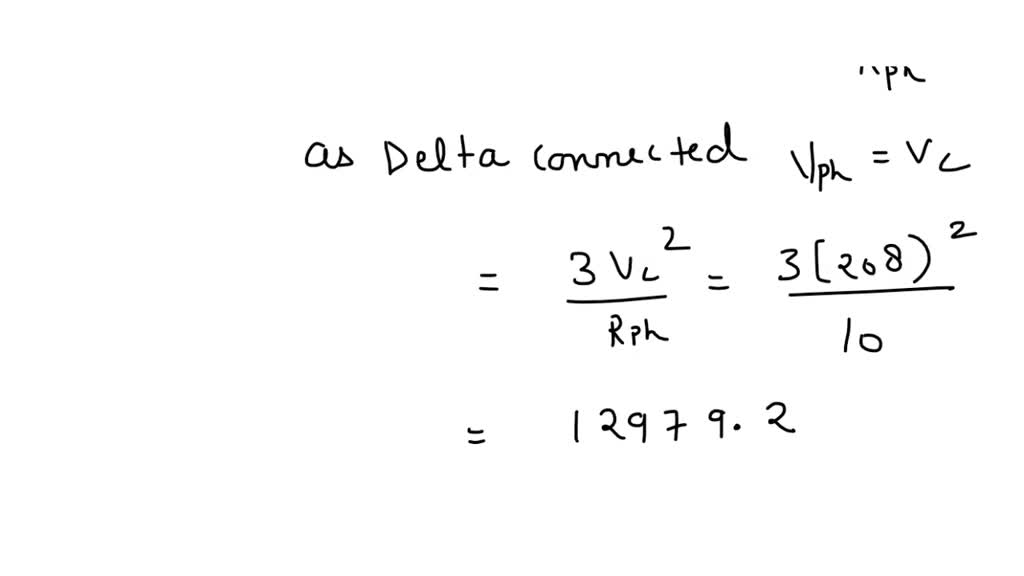 as Delta connected Vph = VL
= 3 VL² / Rph = 3(208)² / 10
= 12979.2